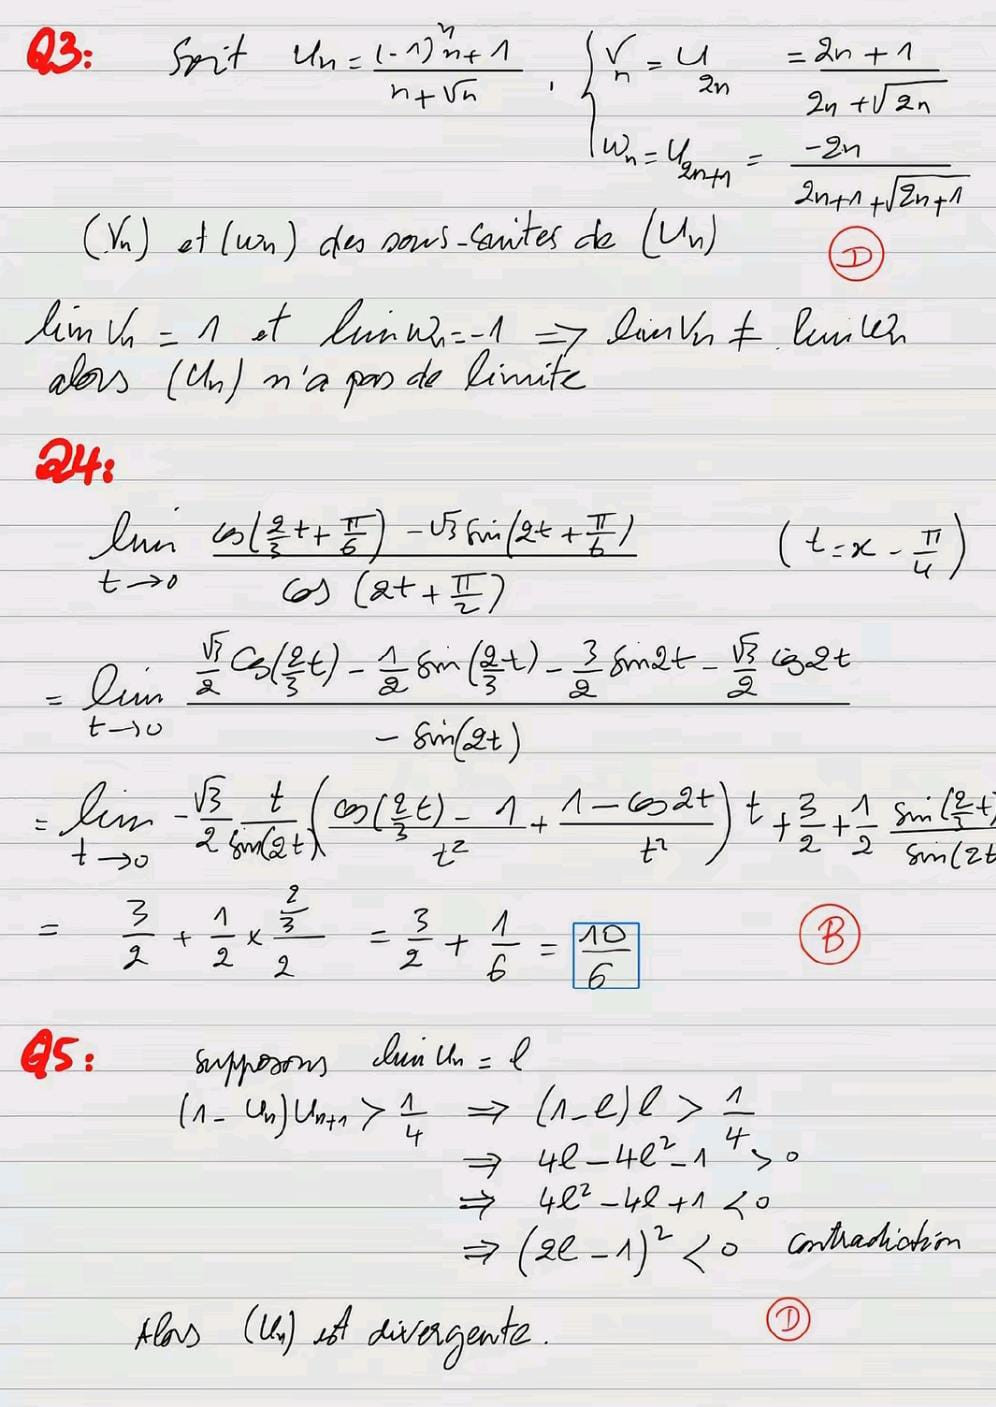 Q3: Soit Un = ((-1)^n n + 1)/(n + √n) , { Vn = U2n = (2n + 1)/(2n + √2n)
Wn = U2n+1 = (-2n)/(2n+1 + √2n+1)
(Vn) et (Wn) des sous-suites de (Un) D
lim Vn = 1 et lim Wn = -1 ⇒ lim Vn ≠ lim Wn
alors (Un) n'a pas de limite
Q4:
lim t→0 (cos(2/3 t + π/6) - √3 sin(2t + π/6))/(cos(2t + π/2)) (t = x - π/4)
= lim t→0 (√3/2 cos(2/3 t) - 1/2 sin(2/3 t) - 3/2 sin 2t - √3/2 cos 2t)/(- sin(2t))
= lim t→0 - √3/2 t/sin(2t) ((cos(2/3 t) - 1)/t² + (1 - cos 2t)/t²) t + 3/2 + 1/2 sin(2/3 t)/sin(2t
= 3/2 + 1/2 × (2/3)/2 = 3/2 + 1/6 = 10/6 B
Q5: Supposons lim Un = l
(1 - Un) Un+1 > 1/4 ⇒ (1 - l) l > 1/4
⇒ 4l - 4l² - 1 > 0
⇒ 4l² - 4l + 1 < 0
⇒ (2l - 1)² < 0 contradiction
Alors (Un) est divergente. D